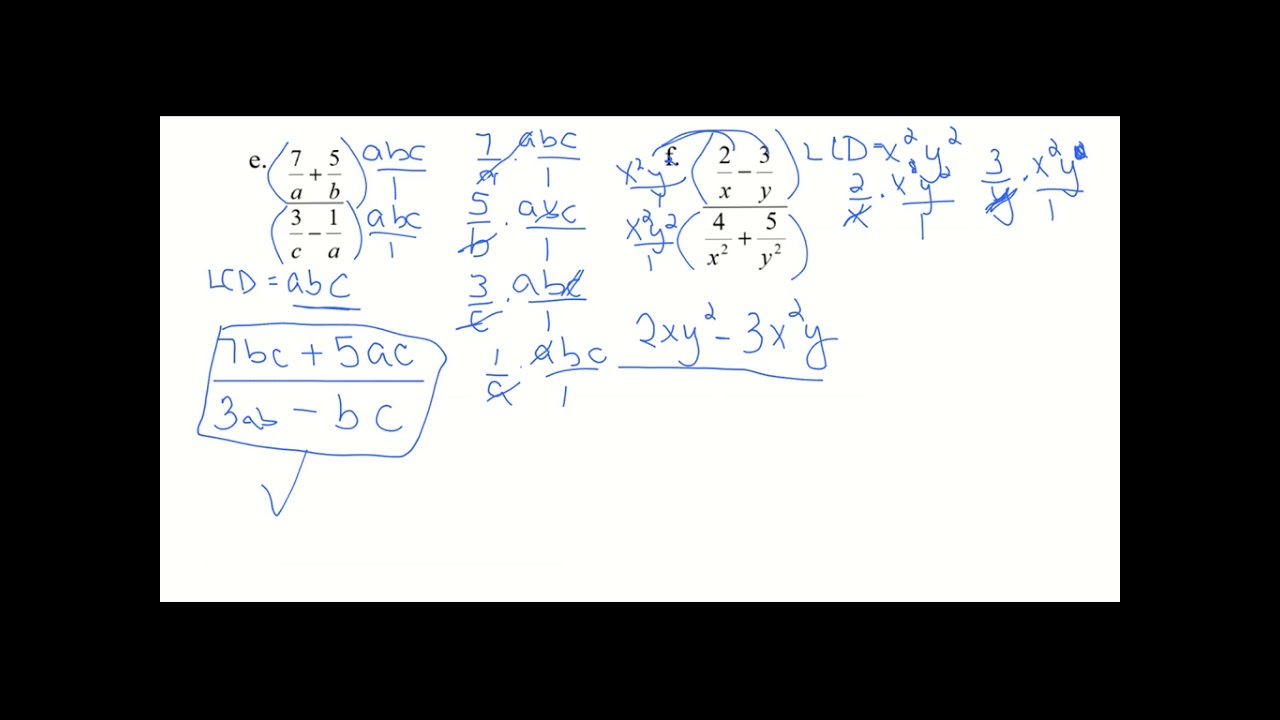 e. (7/a + 5/b) abc/1
(3/c − 1/a) abc/1
LCD = abc
7bc + 5ac
3ab − bc
7/a · abc/1
5/b · abc/1
3/c · abc/1
1/a · abc/1
f. x²y²/1 (2/x − 3/y) LCD = x²y²
x²y²/1 (4/x² + 5/y²)
2/x · x²y²/1
3/y · x²y²/1
2xy² − 3x²y